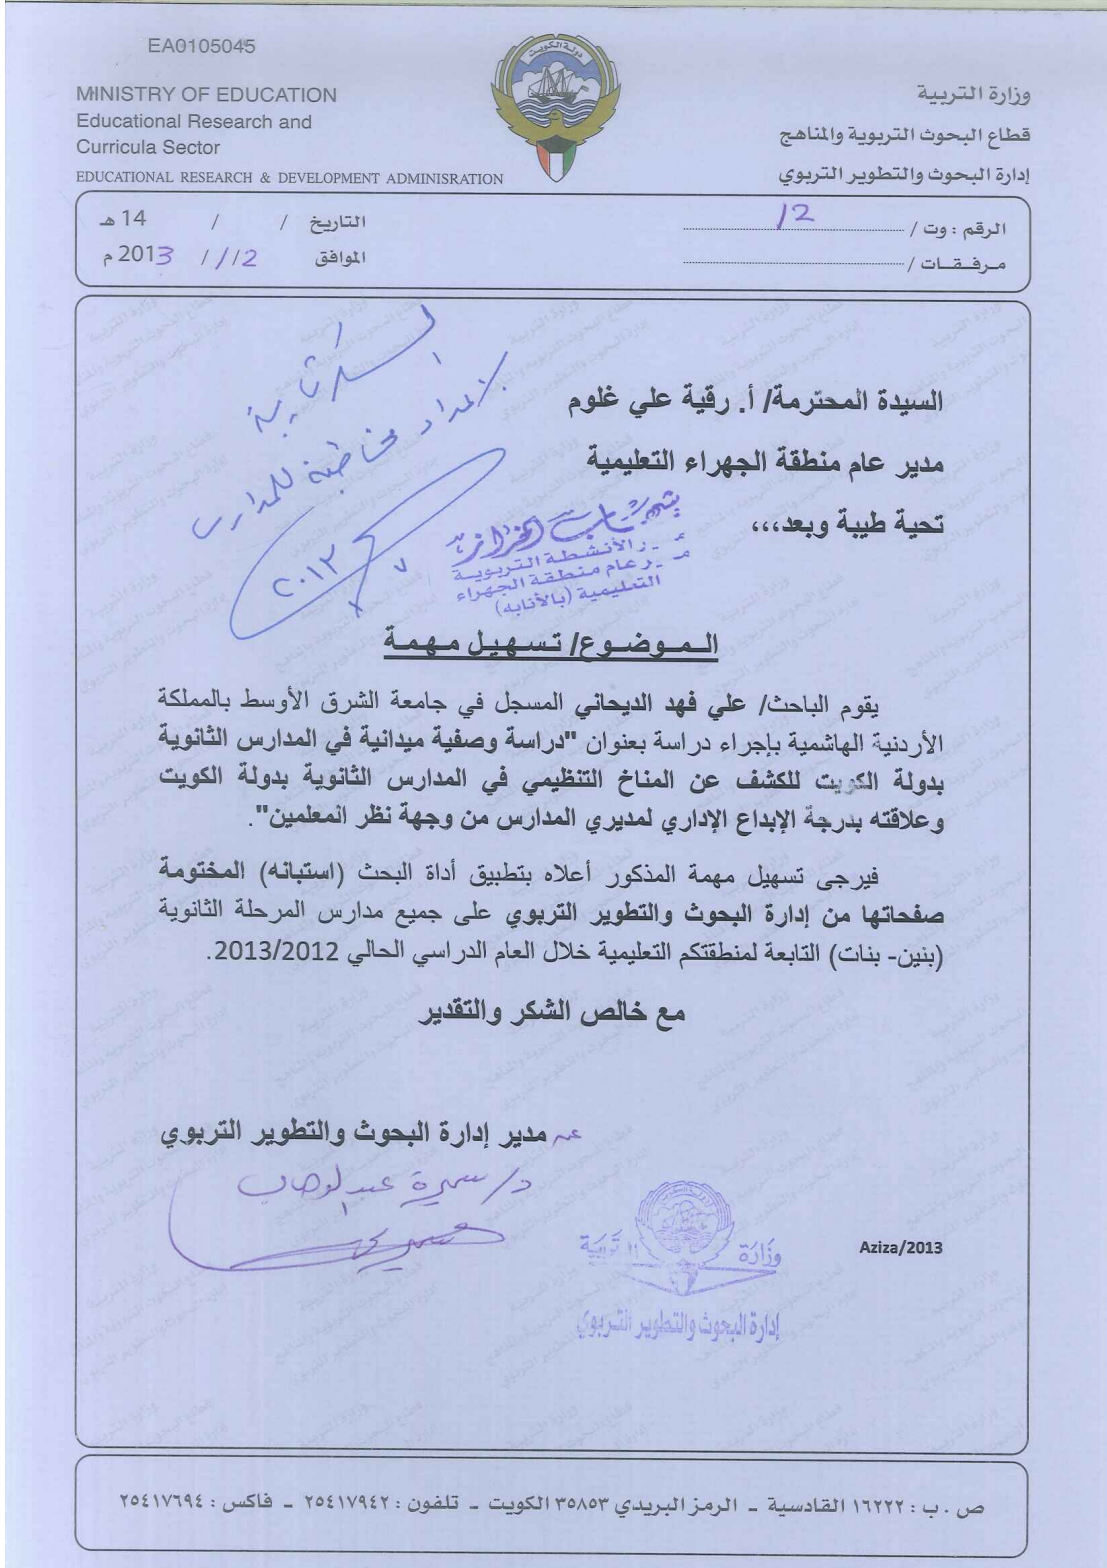 EA0105045
MINISTRY OF EDUCATION
Educational Research and
Curricula Sector
EDUCATIONAL RESEARCH & DEVELOPMENT ADMINISRATION
دولة الكويت
وزارة التربية
قطاع البحوث التربوية والمناهج
إدارة البحوث والتطوير التربوي
الرقم : وت / 12
مرفقات /
التاريخ / / 14 هـ
الموافق 12 / 1 / 2013 م
السيدة المحترمة/ أ. رقية علي غلوم
مدير عام منطقة الجهراء التعليمية
تحية طيبة وبعد،،،
للمدارس
٢٠١٣
الأنشطة التربوية
عام منطقة الجهراء
التعليمية (بالأنابه)
الموضوع/ تسهيل مهمة
يقوم الباحث/ علي فهد الديحاني المسجل في جامعة الشرق الأوسط بالمملكة
الأردنية الهاشمية بإجراء دراسة بعنوان "دراسة وصفية ميدانية في المدارس الثانوية
بدولة الكويت للكشف عن المناخ التنظيمي في المدارس الثانوية بدولة الكويت
وعلاقته بدرجة الإبداع الإداري لمديري المدارس من وجهة نظر المعلمين".
فيرجى تسهيل مهمة المذكور أعلاه بتطبيق أداة البحث (استبانه) المختومة
صفحاتها من إدارة البحوث والتطوير التربوي على جميع مدارس المرحلة الثانوية
(بنين- بنات) التابعة لمنطقتكم التعليمية خلال العام الدراسي الحالي 2013/2012.
مع خالص الشكر والتقدير
عنـ مدير إدارة البحوث والتطوير التربوي
د/ سميرة عبدالوهاب
وزارة التربية
إدارة البحوث والتطوير التربوي
Aziza/2013
ص . ب : ١٦٢٢٢ القادسية - الرمز البريدي ٣٥٨٥٣ الكويت - تلفون : ٢٥٤١٧٩٤٢ - فاكس : ٢٥٤١٧٦٩٤